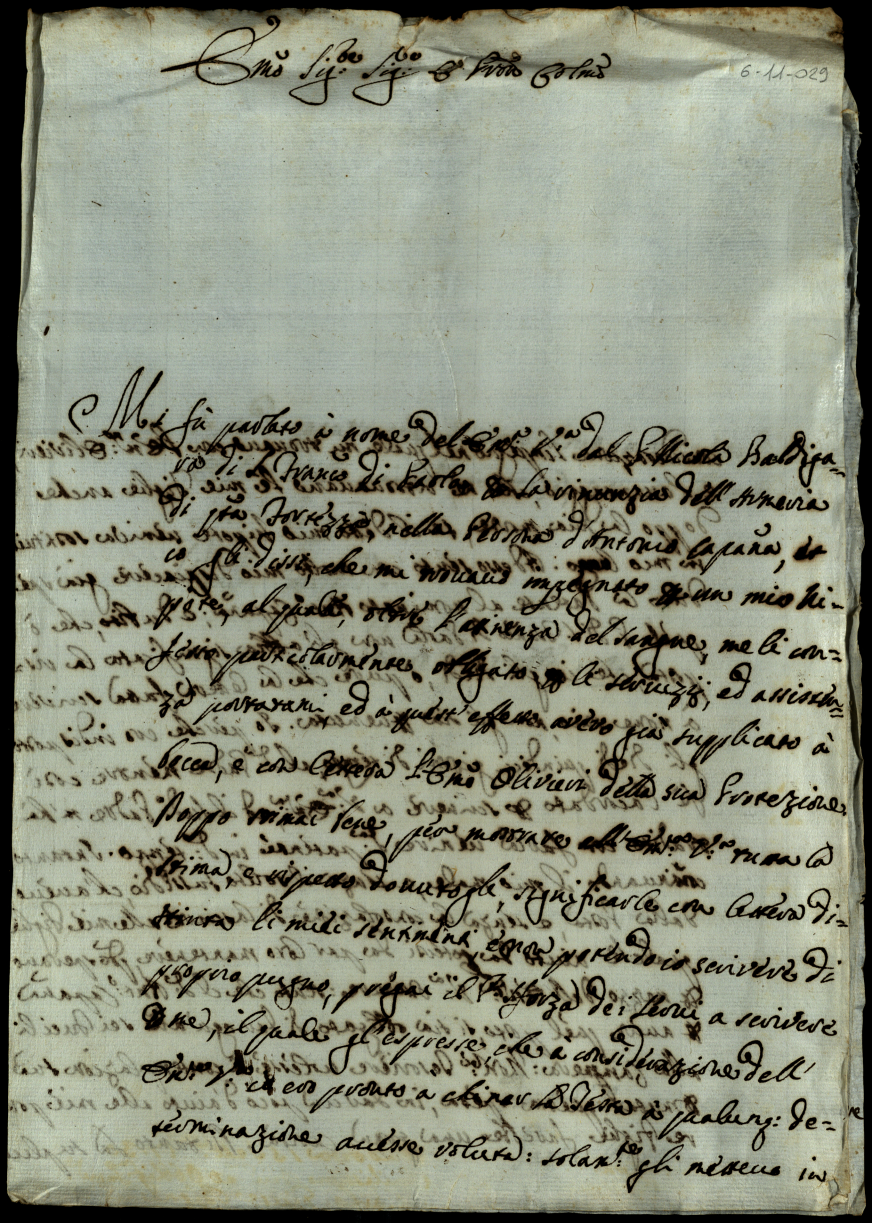 Emō Sig.re Sig.re e Prōn Colmō
6-11-029
Mi fù parlato à nome dell'Em.a V.a dal P. Nicola Baldiga=
ra di S. Franc.o di Paola la rinunzia dell'Armeria
di qta Fortezza nella Persona d'Antonio Capaña, ed
io gli dissi, che mi trovavo impegnato un mio Ni=
pote, al quale, oltre l'attinenza del sangue, me li con=
fesso particolarmente obligato li servizij, ed assisten=
za portatami, ed à quest'effetto avevo già supplicato à
bocca, e con lettera l'Emō Olivieri della sua Protezione
Doppo stimai bene, per mostrare all'Em.a V.a tutta la
stima, e rispetto dovutogli, significarle con lettera di=
stinta li miei sentimenti è non potendo io scrivere di
proprio pugno, pregai il Sforza de a scrivere
me, il quale gl'espresse che à considerazione dell'
Em.a V.a io ero pronto a chinar la testa à qualunq: de=
terminazione avesse voluta: solam.te gli metteva in